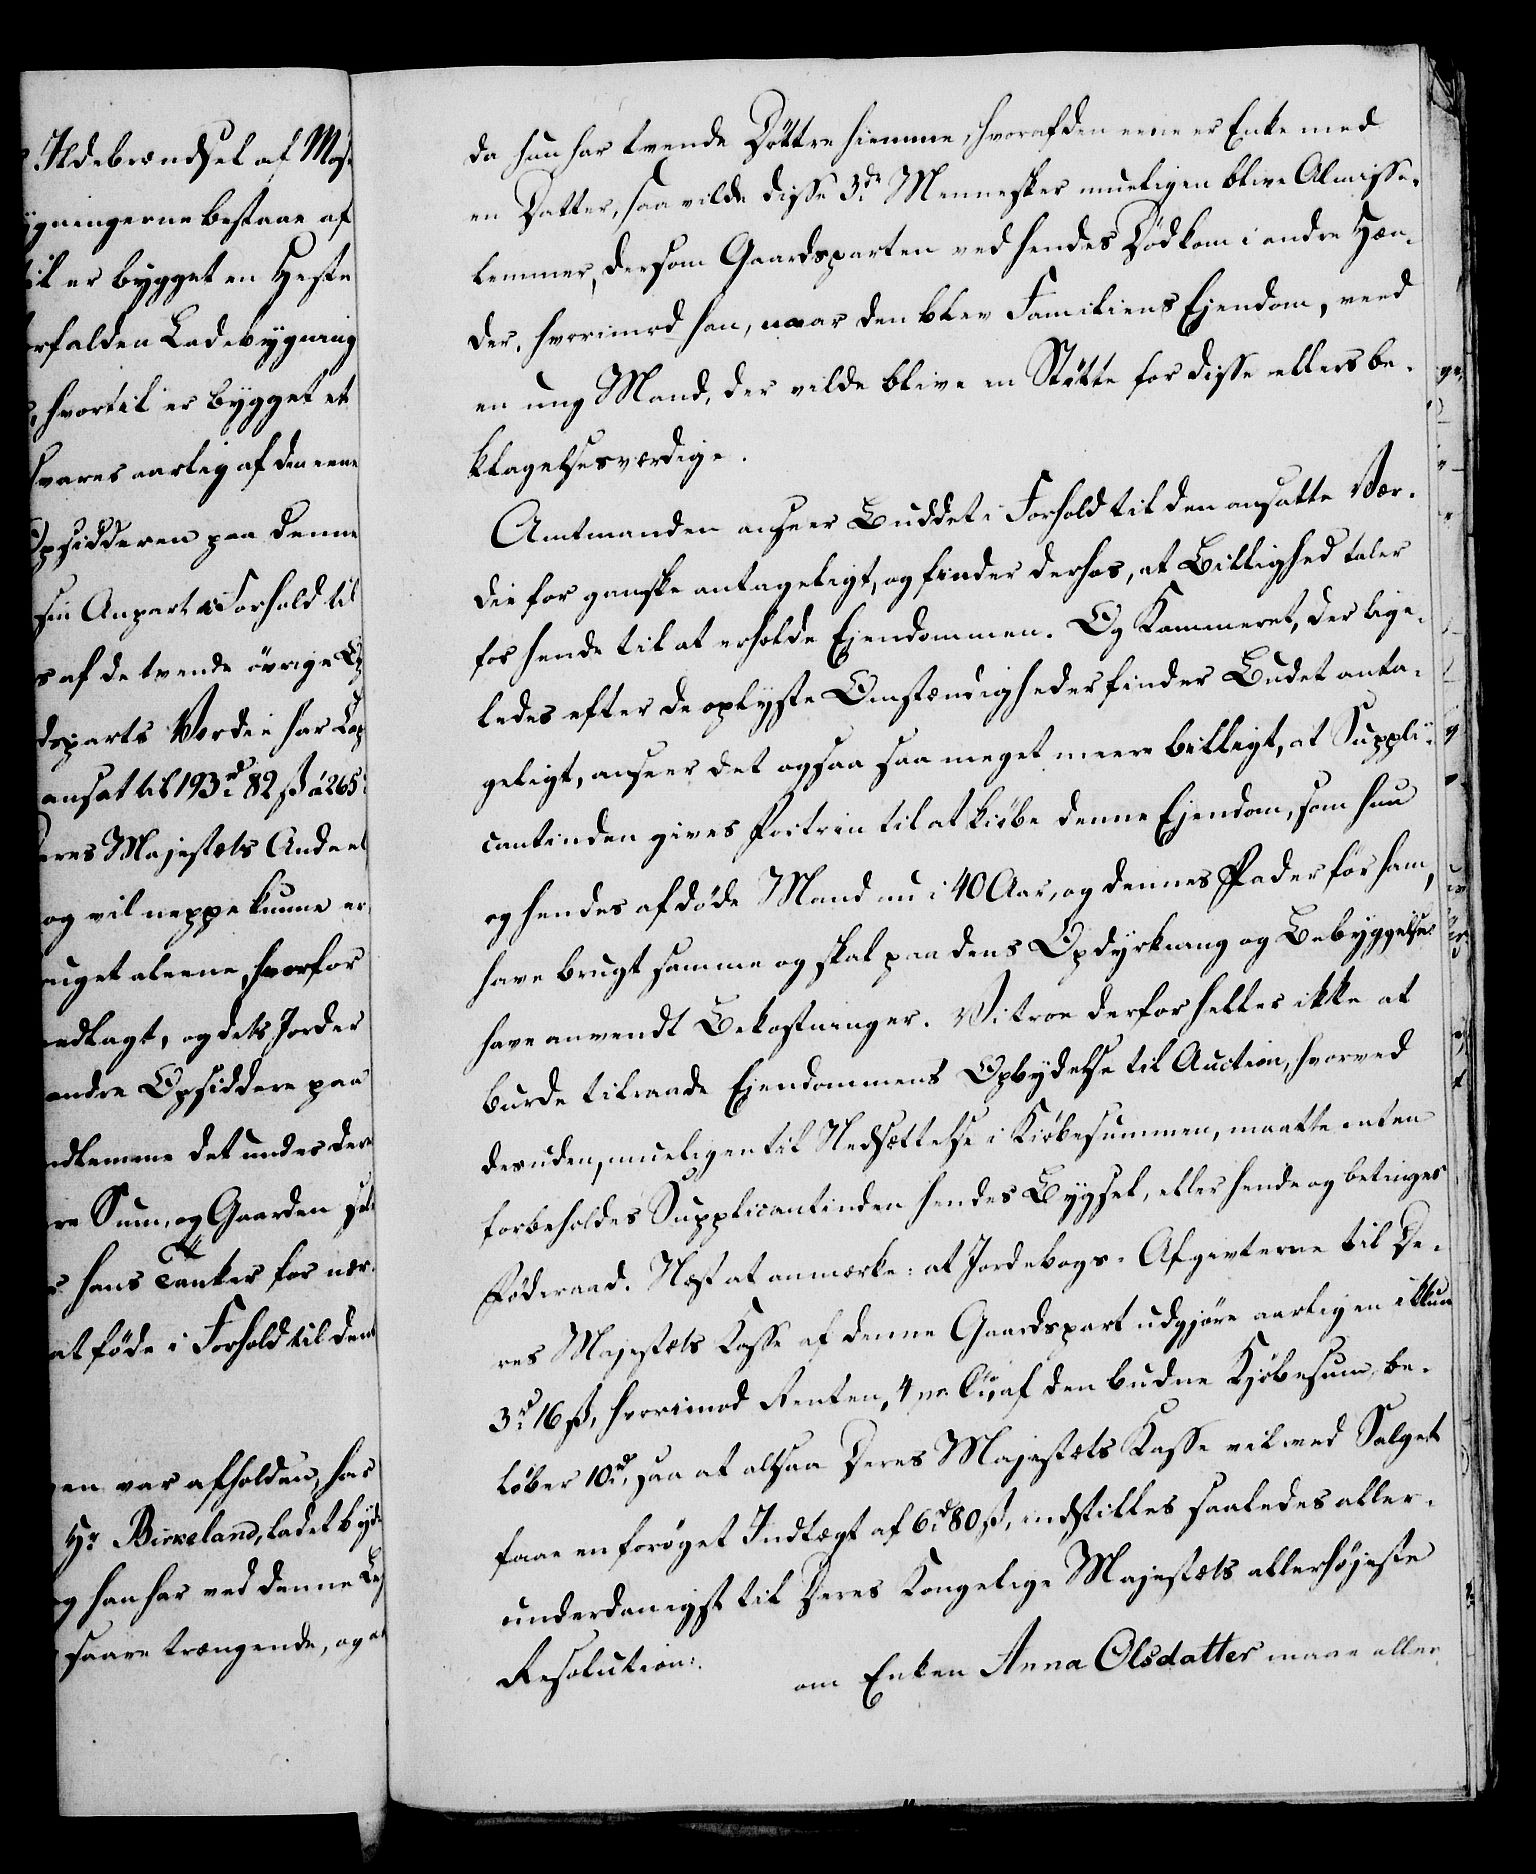 Ildebrændsel af Mos
ygningerne bestaae af
til er bygget en Heste
rfalden Ladebygning
hvortil er bygget et
svares aarlig af den eene
Opsidderen paa denne
sin Anpart i Forhold til
s af de tvende øvrige
dsparts Værdie har
ansat til 193 rd 82 ß à 265
eres Majestæts Andeel
og vil neppe kunne er
uget aleene, hvorfor
edlagt, og dets Jorder
andre Opsiddere paa
dlemme det under den
re Sum, og Gaarden
s hans Tanker for nær
at føde i Forhold til den
en var afholden, har
Hr Birkeland, ladet byde
g han har ved denne
saare trængende, og at
da hun har tvende Døttre hiemme, hvoraf den eene er Enke med
en Datter, saa vilde disse 3de Mennesker mueligen blive Almisse-
lemmer, dersom Gaardsparten ved hendes Død kom i andre Hæn-
der, hvorimod han, naar den blev Familiens Ejendom, veed
en ung Mand, der vilde blive en Støtte for disse ellers be-
klagelsesværdige.
Amtmanden anseer Buddet i Forhold til den ansatte Vær-
die for ganske antageligt, og finder derhos, at Billighed taler
for hende til at erholde Ejendommen. Og Kammeret, der lige-
ledes efter de oplyste Omstændigheder finder Budet anta-
geligt, anseer det ogsaa saa meget meere billigt, at Suppli-
cantinden gives Fortrin til at kiøbe denne Ejendom, som hun
og hendes afdøde Mand nu i 40 Aar, og dennes Fader før ham,
have brugt samme og skal paa dens Opdyrkning og Bebyggelse
have anvendt Bekostninger. Vi troe derfor heller ikke at
burde tilraade Ejendommens Opbydelse til Auction, hvorved
desuden, mueligen til Nedsættelse i Kiøbesummen, maatte enten
forbeholdes Supplicantinden hendes Bygsel, eller hende og betinges
Føderaad. Næst at anmærke: at Jordebogs-Afgivterne til De-
res Majestæts Kasse af denne Gaardspart udgjøre aarligen ikkun
3 rd 16 ß, hvorimod Renten, 4 pr Cto, af den budne Kjøbesum, be-
løber 10 rd, saa at altsaa Deres Majestæts Kasse vil ved Salget
faae en forøget Indtægt af 6 rd 80 ß, indstilles saaledes aller-
underdanigst til Deres Kongelige Majestæts allerhøjeste
Resolution:
om Enken Anna Olsdatter maae aller